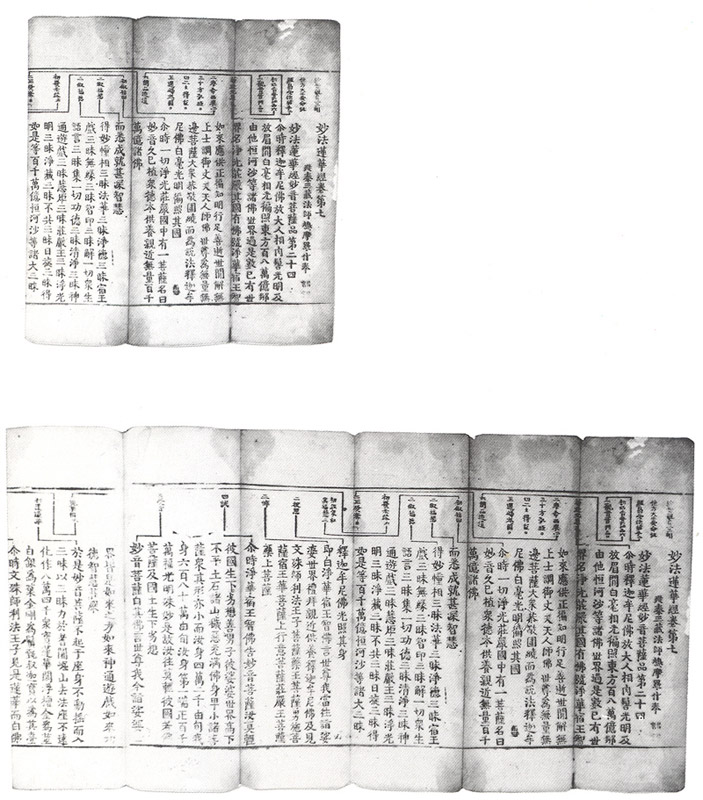 妙法蓮華經卷第七
後秦三藏法師鳩摩羅什奉 詔
妙法蓮華經妙音菩薩品第二十四
尒時釋迦牟尼佛放大人相肉髻光明及
放眉間白毫相光徧照東方百八萬億那
由他恒河沙等諸佛世界過是數已有世
界名淨光莊嚴其國有佛號淨華宿王智
如來應供正徧知明行足善逝世間解無
上士調御丈夫天人師佛世尊爲無量無
邊菩薩大衆恭敬圍繞而爲說法釋迦牟
尼佛白毫光明徧照其國
尒時一切淨光莊嚴國中有一菩薩名曰
妙音久已植衆德本供養親近無量百千
萬億諸佛
而悉成就甚深智慧
得妙幢相三昧法華三昧淨德三昧宿王
戲三昧無緣三昧智印三昧解一切衆生
語言三昧集一切功德三昧清淨三昧神
通遊戲三昧慧炬三昧莊嚴王三昧淨光
明三昧淨藏三昧不共三昧日旋三昧得
如是等百千萬億恒河沙等諸大三昧
妙法蓮華經卷第七
後秦三藏法師鳩摩羅什奉 詔
妙法蓮華經妙音菩薩品第二十四
尒時釋迦牟尼佛放大人相肉髻光明及
放眉間白毫相光徧照東方百八萬億那
由他恒河沙等諸佛世界過是數已有世
界名淨光莊嚴其國有佛號淨華宿王智
如來應供正徧知明行足善逝世間解無
上士調御丈夫天人師佛世尊爲無量無
邊菩薩大衆恭敬圍繞而爲說法釋迦牟
尼佛白毫光明徧照其國
尒時一切淨光莊嚴國中有一菩薩名曰
妙音久已植衆德本供養親近無量百千
萬億諸佛
而悉成就甚深智慧
得妙幢相三昧法華三昧淨德三昧宿王
戲三昧無緣三昧智印三昧解一切衆生
語言三昧集一切功德三昧清淨三昧神
通遊戲三昧慧炬三昧莊嚴王三昧淨光
明三昧淨藏三昧不共三昧日旋三昧得
如是等百千萬億恒河沙等諸大三昧
釋迦牟尼佛光照其身
即白淨華宿王智佛言世尊我當往詣娑
婆世界禮拜親近供養釋迦牟尼佛及見
文殊師利法王子菩薩藥王菩薩勇施菩
薩宿王華菩薩上行意菩薩莊嚴王菩薩
藥上菩薩
尒時淨華宿王智佛告妙音菩薩汝莫輕
彼國生下劣想善男子彼娑婆世界高下
不平土石諸山穢惡充滿佛身卑小諸菩
薩衆其形亦小而汝身四萬二千由旬我
身六百八十萬由旬汝身第一端正百千
萬福光明殊妙是故汝往莫輕彼國若佛
菩薩及國土生下劣想
妙音菩薩白其佛言世尊我今詣娑婆
世界皆是如來之力如來神通遊戲如來功
德智慧莊嚴
於是妙音菩薩不起于座身不動搖而入
三昧以三昧力於耆闍崛山去法座不遠
化作八萬四千衆寶蓮華閻浮檀金爲莖
白銀爲葉金剛爲鬚甄叔迦寶以爲其臺
尒時文殊師利法王子見是蓮華而白佛